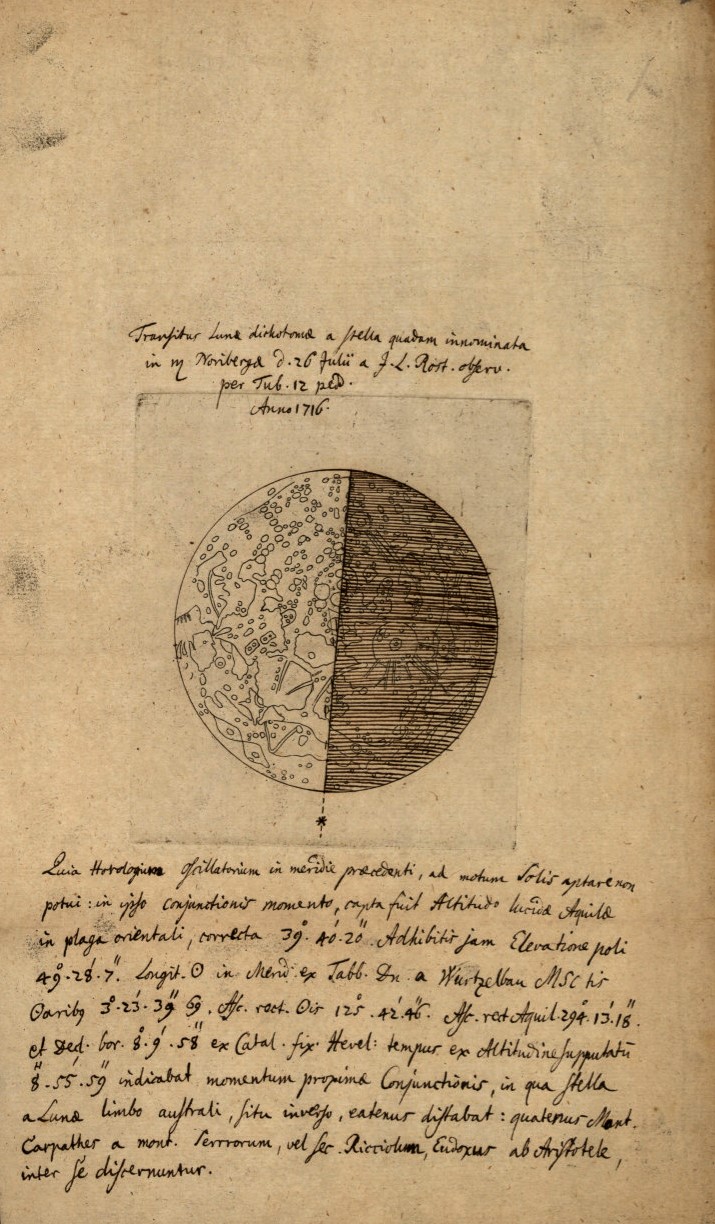 Transitus Lunæ dichotomæ a stella quadam innominata
in ♏ Noribergæ d. 26 Julii a J. L. Rost. observ.
per Tub. 12 ped.
Anno 1716.
Quia Horologium oscillatorium in meridie præcedenti, ad motum Solis aptare non
potui: in ipso conjunctionis momento, capta fuit Altitudo lucidæ Aquilæ
in plaga orientali, correcta 39°. 40'. 20". Adhibitis jam Elevatione poli
49°. 28'. 7". Longit. ☉ in Merid. ex Tabb. Dn. a Wurtzelbau MSCtis
3°. 23'. 39" Asc. rect. Ois 125°. 42'. 46". Asc. rect Aquil. 294°. 13'. 18".
et Decl. bor. 8°. 9'. 58" ex Catal. fix. Hevel: tempus ex Altitudine supputatū
8". 55'. 59" indicabat momentum proximæ Conjunctionis, in qua stella
a Lunæ limbo australi, situ inverso, eatenus distabat: quatenus Mont.
Carpathes a mont. Serrorum, vel sec. Ricciolum, Eudoxus ab Aristotele,
inter se discernuntur.